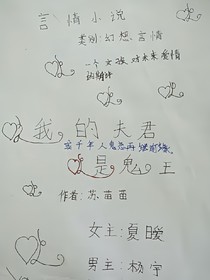 言情小说
类别:幻想.言情
一个女孩对未来爱情
的期待
我的夫君
千年人鬼恋再续前缘
是鬼王
作者:苏苗苗
女主:夏暖
男主:杨宇